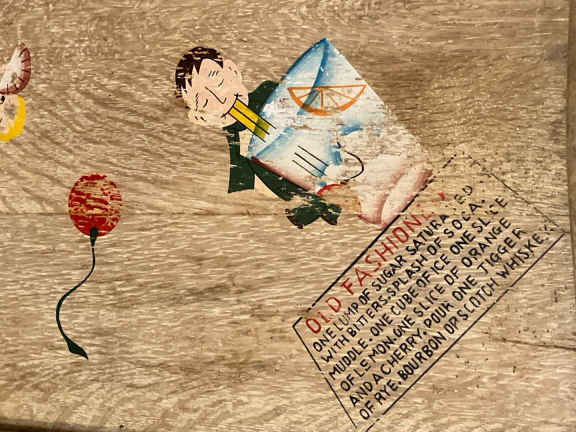 OLD FASHIONED
ONE LUMP OF SUGAR SATURATED
WITH BITTERS. SPLASH OF SODA.
MUDDLE. ONE CUBE OF ICE ONE SLICE
OF LEMON, ONE SLICE OF ORANGE
AND A CHERRY. POUR ONE JIGGER
OF RYE, BOURBON OR SCOTCH WHISKEY.